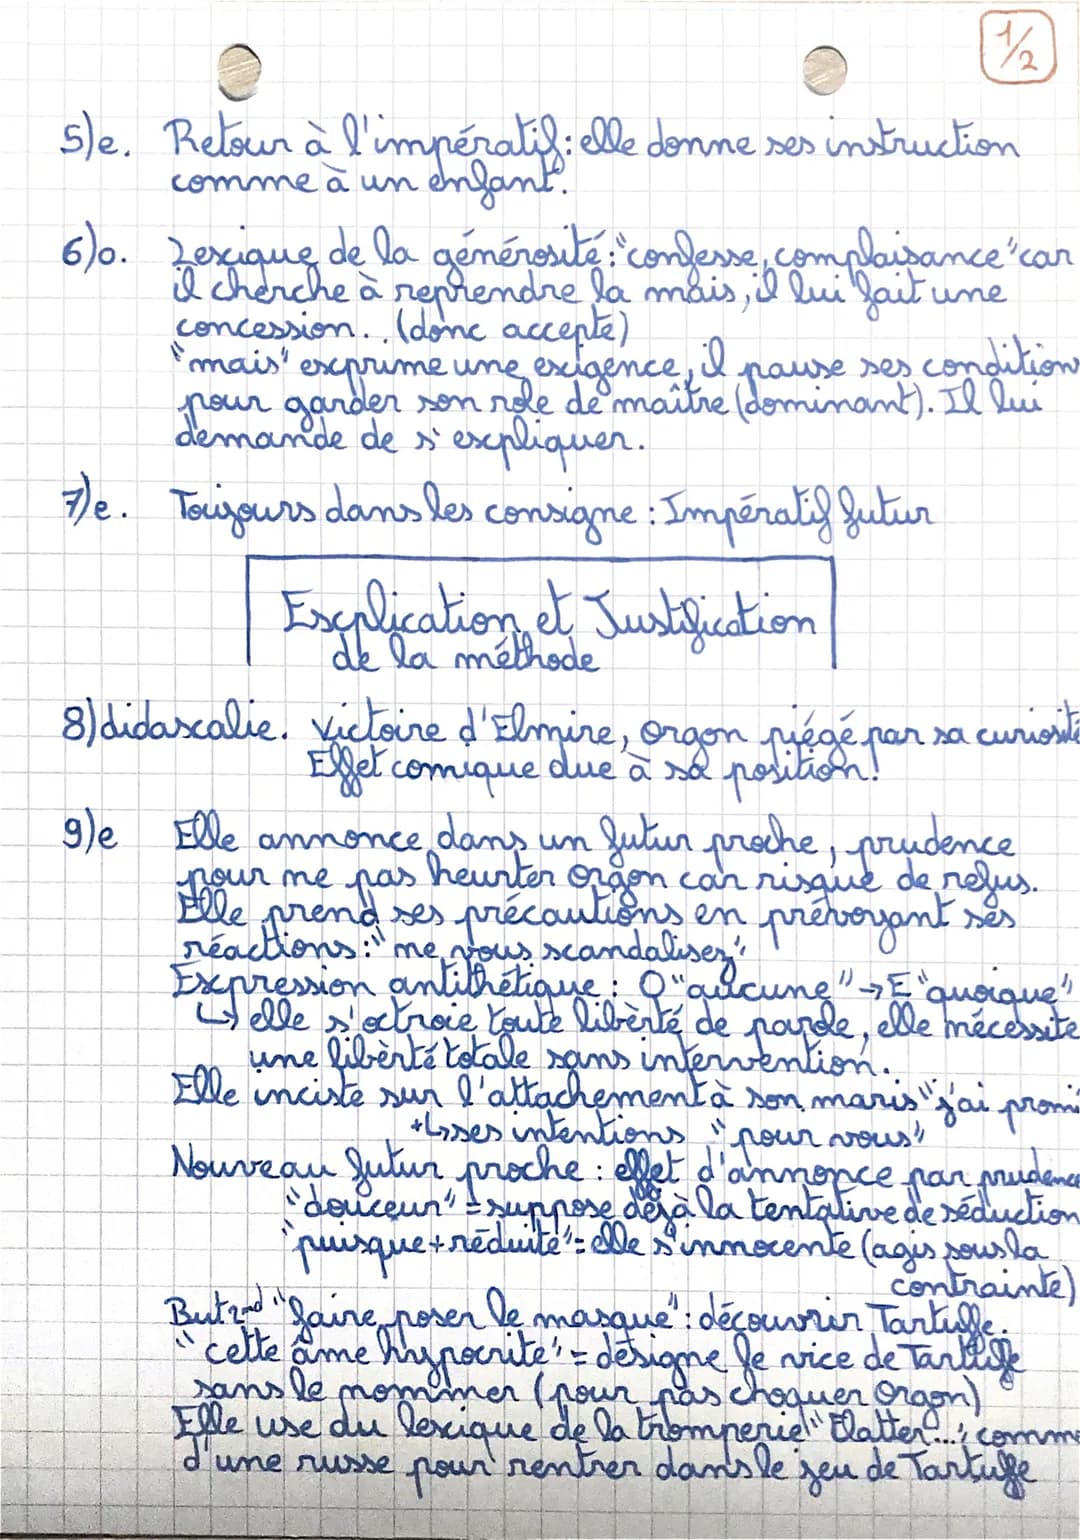 1/2
5)e. Retour à l'impératif: elle donne ses instruction
comme à un enfant.
6)o. Lexique de la générosité: "confesse, complaisance" car
il cherche à reprendre la main, il lui fait une
concession. (donc accepte)
"mais" exprime une exigence, il pause ses condition
pour garder son role de maître (dominant). Il lui
demande de s'expliquer.
7)e. Toujours dans les consigne: Impératif futur
Explication et Justification
de la méthode
8) didascalie. Victoire d'Elmire, Orgon piégé par sa curiosité
Effet comique due à sa position!
9)e Elle annonce dans un futur proche, prudence
pour ne pas heurter Orgon car risque de refus.
Elle prend ses précautions en prévoyant ses
réactions: "ne vous scandalisez"
Expression antithétique: O "aucune" → E "quoique"
↳ elle s'octroie toute libèrté de parole, elle nécessite
une libèrté totale sans intervention.
Elle inciste sur l'attachement à son maris "j'ai promi
+↳ ses intentions "pour vous"
Nouveau futur proche: effet d'annonce par prudence
"douceur" = suppose déjà la tentative de séduction
"puisque + réduite" = elle s'innocente (agis sous la
contrainte)
But 2nd "faire poser le masque": découvrir Tartuffe.
"cette âme hypocrite" = désigne le vice de Tartuffe
sans le nommer (pour pas choquer Orgon)
Elle use du lexique de la tromperie "Flatter...", comme
d'une russe pour rentrer dans le jeu de Tartuffe